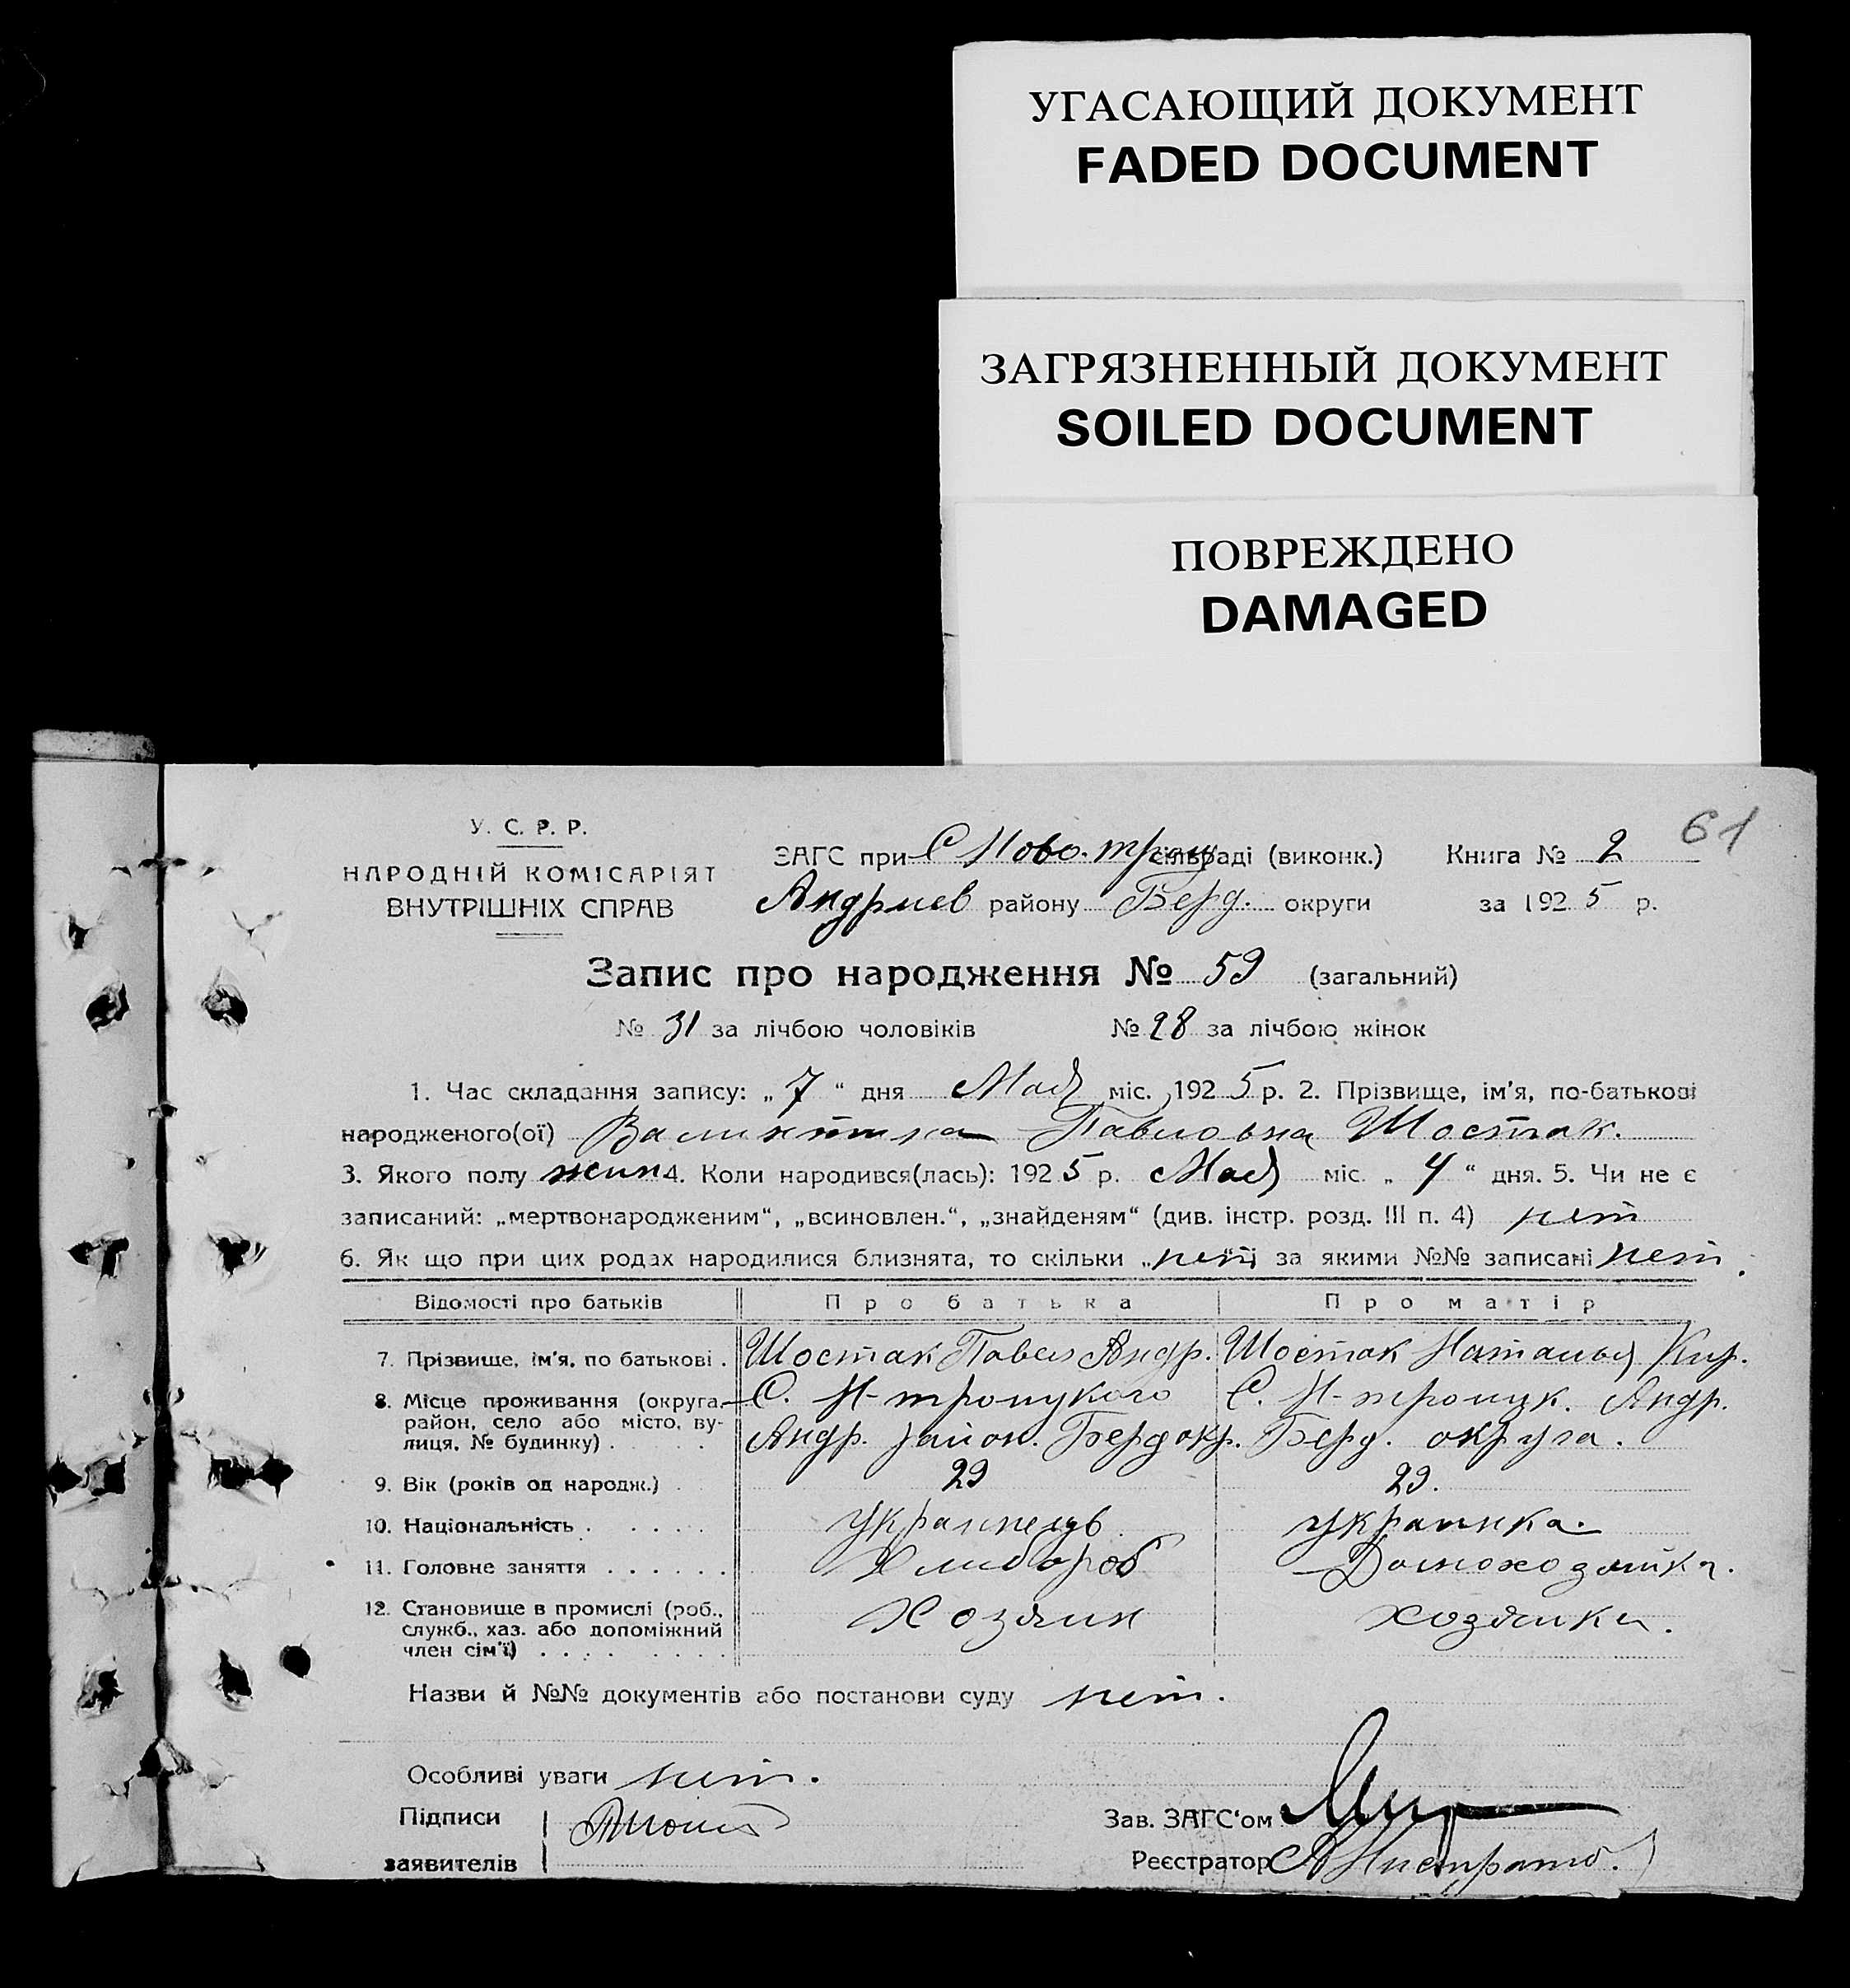 УГАСАЮЩИЙ ДОКУМЕНТ
FADED DOCUMENT
ЗАГРЯЗНЕННЫЙ ДОКУМЕНТ
SOILED DOCUMENT
ПОВРЕЖДЕНО
DAMAGED
61
У. С. Р. Р.
НАРОДНІЙ КОМІСАРІЯТ
ВНУТРІШНІХ СПРАВ
ЗАГС при С Ново-троц сільраді (виконк.) Книга № 2
Андриев району Берд. округи за 1925 р.
Запис про народження № 59 (загальний)
№ 31 за лічбою чоловіків № 28 за лічбою жінок
1. Час складання запису: „7“ дня Мая міс. 1925 р. 2. Прізвище, ім'я, по-батькові
народженого(ої) Валинтина Павловна Шостак.
3. Якого полу жин 4. Коли народився(лась): 1925 р. Мая міс. „4“ дня. 5. Чи не є
записаний: „мертвонародженим“, „всиновлен.“, „знайденям“ (див. інстр. розд. III п. 4) нет
6. Як що при цих родах народилися близнята, то скільки „нет“ і за якими №№ записані нет.
Відомості про батьків Про батька Про матір
7. Прізвище, ім'я, по батькові . Шостак Павел Андр. Шостак Наталья Кир.
8. Місце проживання (округа, С. Н-троицкого С. Н-троицк. Андр.
район, село або місто, ву-
лиця, № будинку) . . . Андр. район. Берд окр. Берд. округа.
9. Вік (років од народж.) . 29 29.
10. Національність . . . . . Украинець украинка.
11. Головне заняття . . . . . . Хлибороб Домохозяйка.
12. Становище в промислі (роб.,
служб., хаз. або допоміжний Хозяин хозяйка.
член сім'ї) . . . . . . . .
Назви й №№ документів або постанови суду нет.
Особливі уваги нет.
Підписи
Зав. ЗАГС'ом
заявителів
Реєстратор